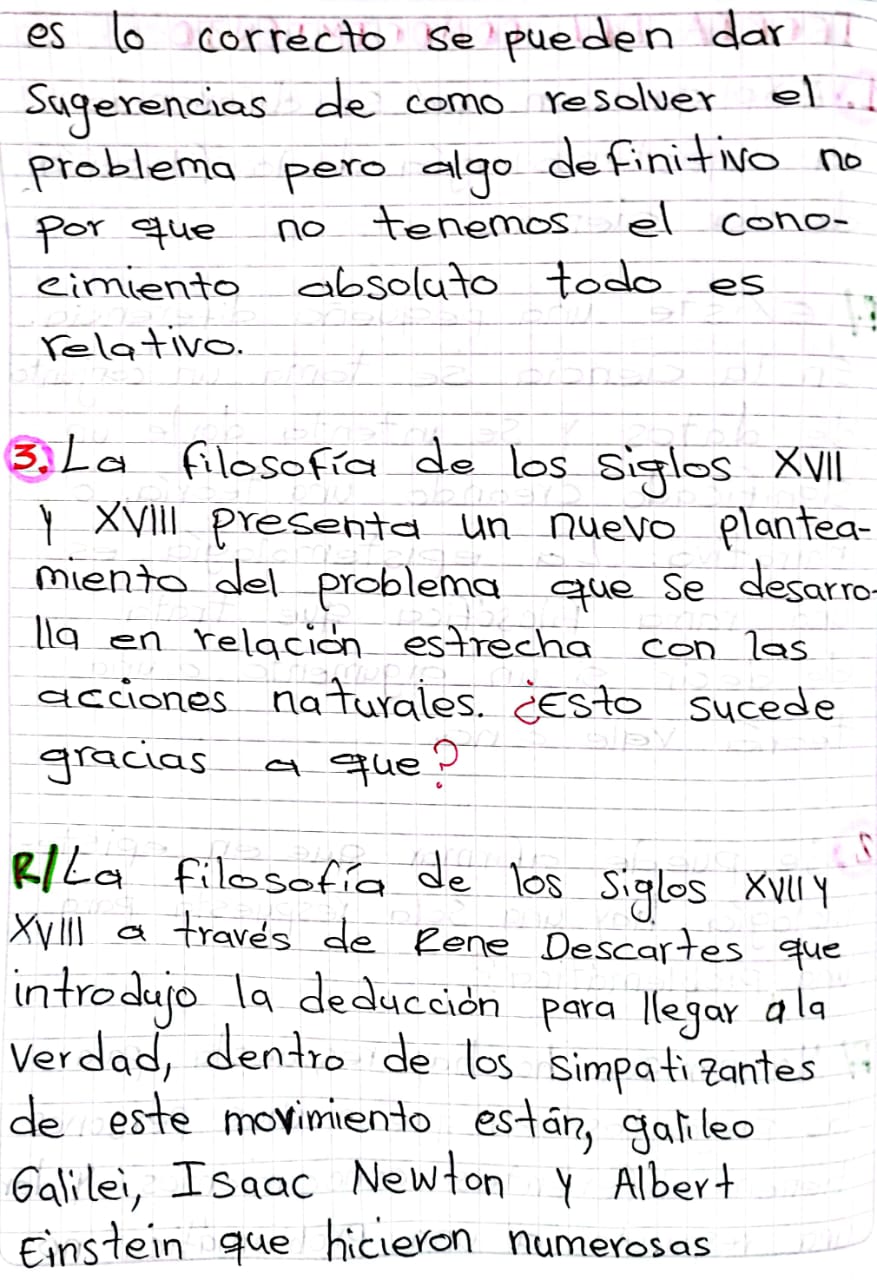 es lo correcto se pueden dar
Sugerencias de como resolver el
problema pero algo definitivo no
por que no tenemos el cono-
cimiento absoluto todo es
relativo.
3. La filosofía de los siglos XVII
y XVIII presenta un nuevo plantea-
miento del problema que se desarro-
lla en relación estrecha con las
acciones naturales. ¿Esto sucede
gracias a que?
R/La filosofía de los siglos XVII y
XVIII a través de Rene Descartes que
introdujo la deducción para llegar a la
verdad, dentro de los simpatizantes
de este movimiento están, galileo
Galilei, Isaac Newton y Albert
Einstein que hicieron numerosas